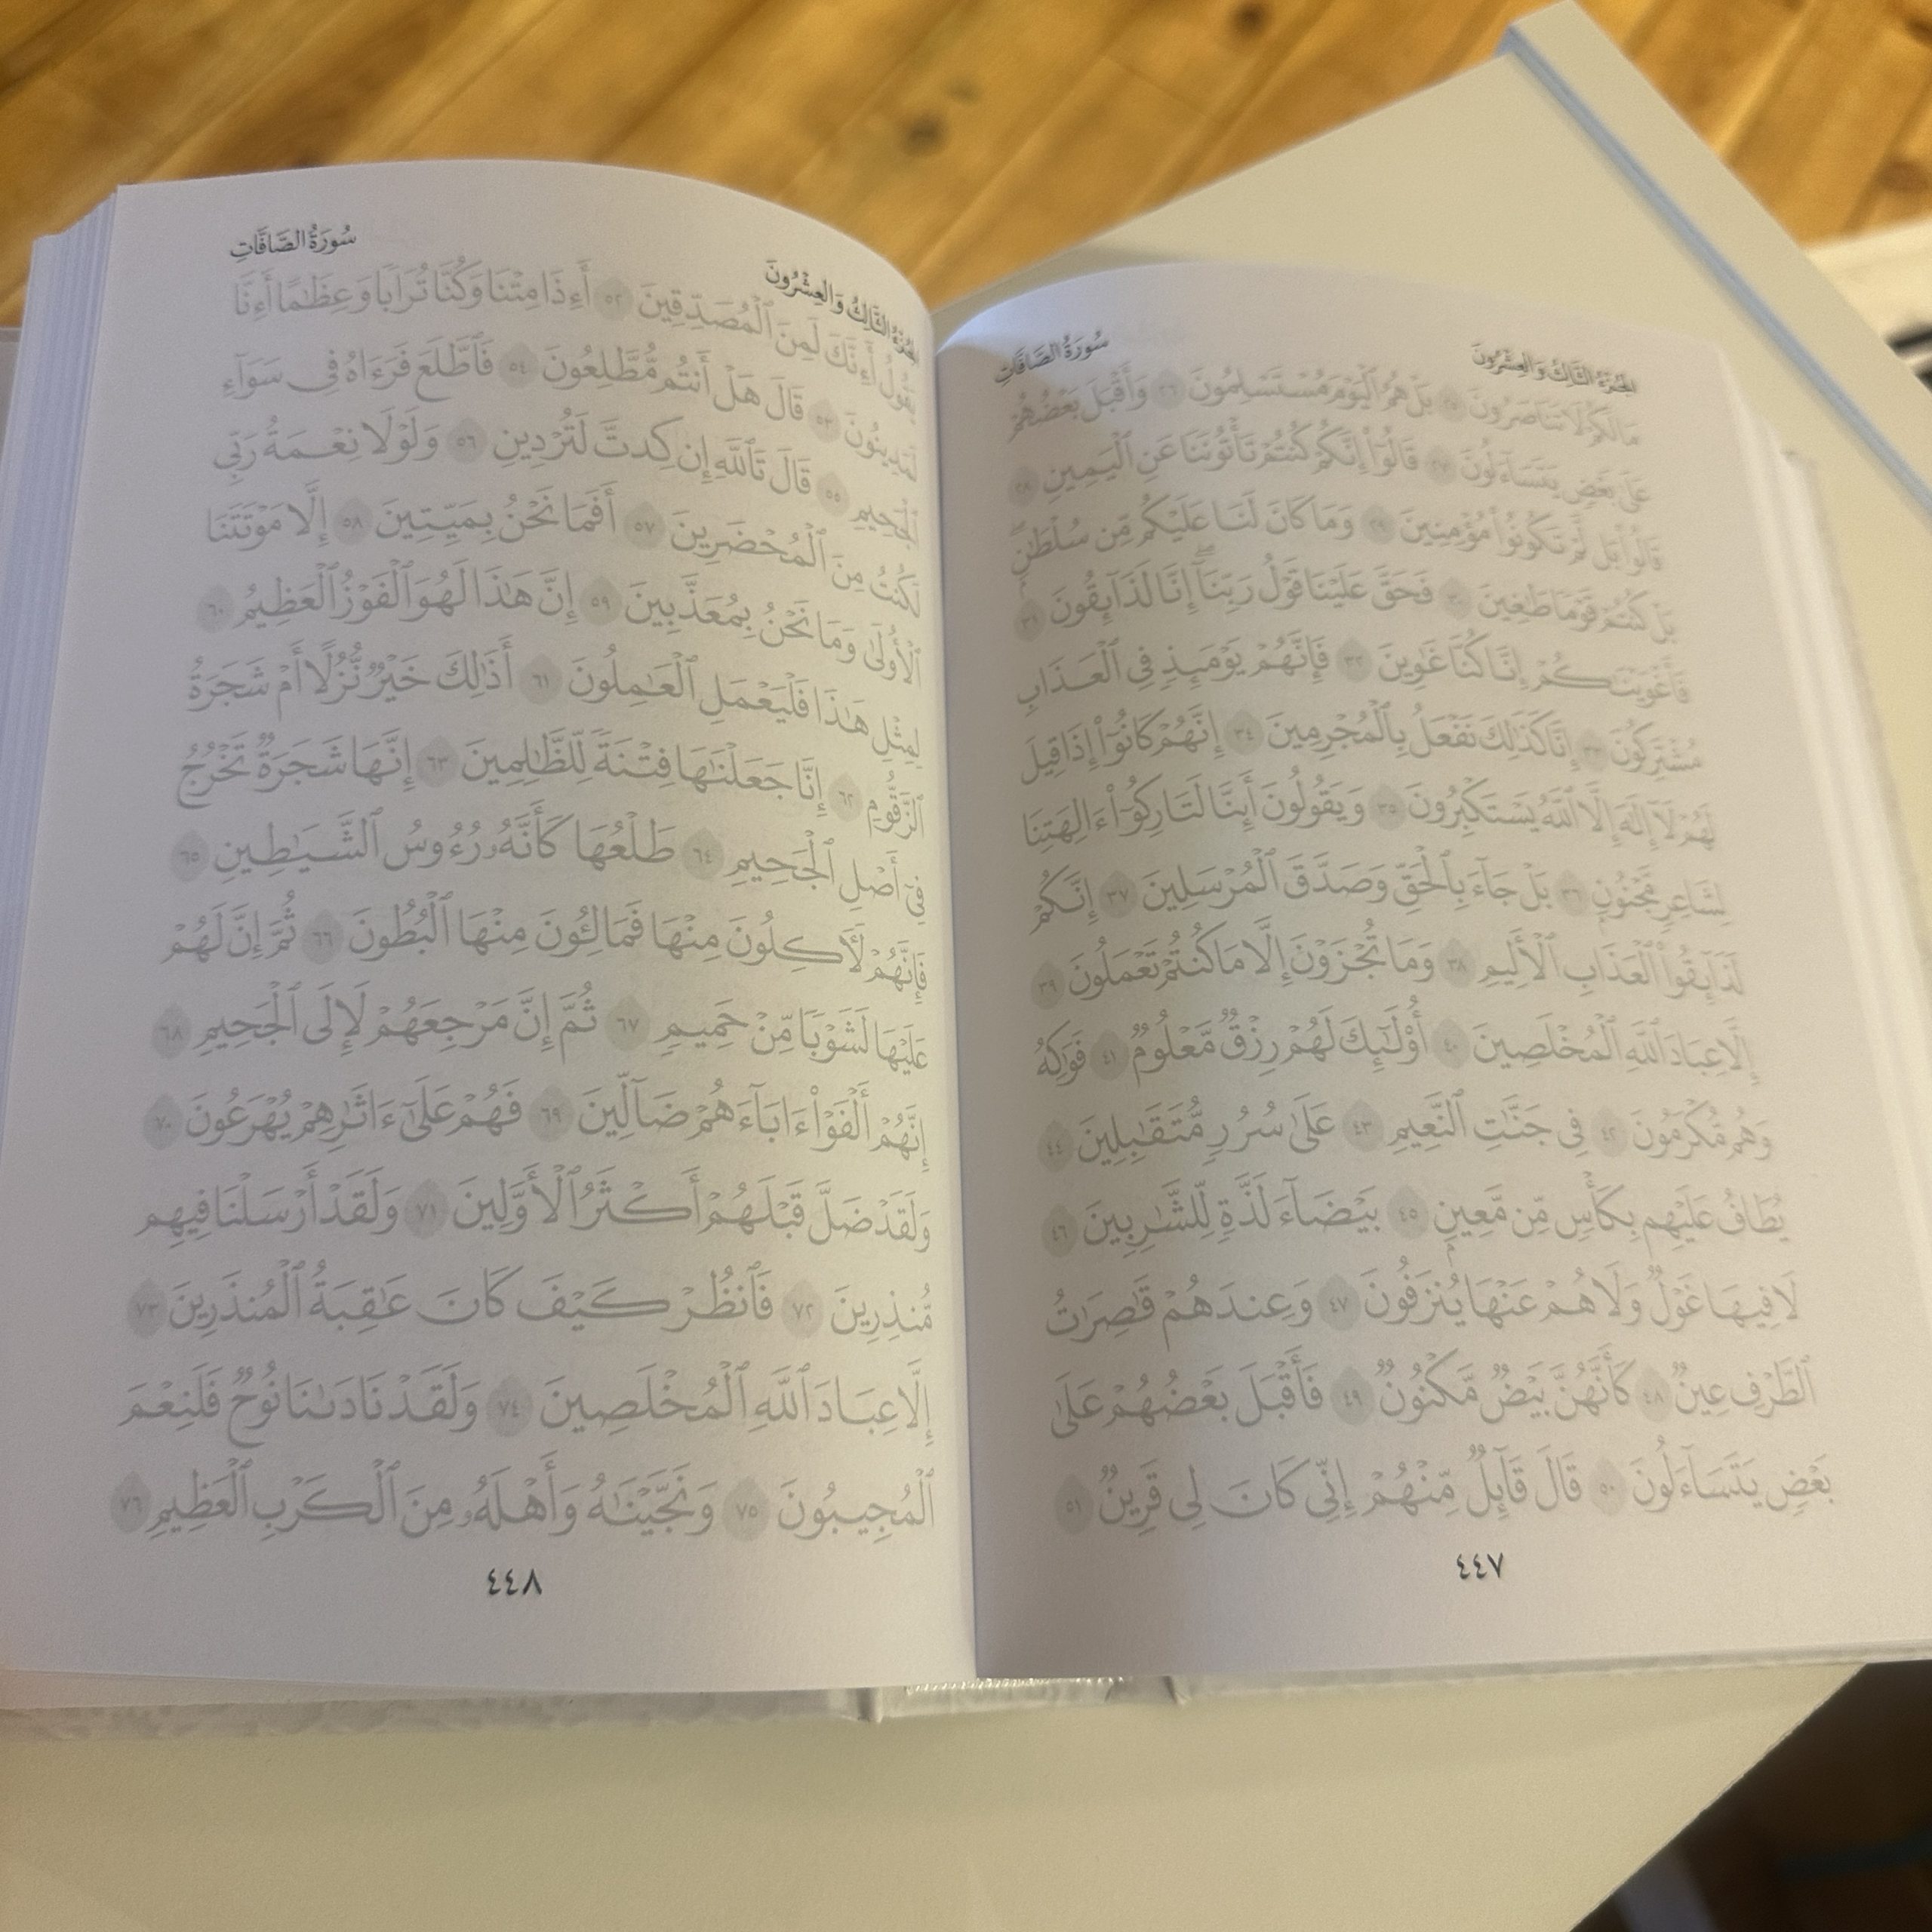 الجزء الثالث والعشرون
سورة الصافات
مَا لَكُمْ لَا تَنَاصَرُونَ ٢٥ بَلْ هُمُ ٱلْيَوْمَ مُسْتَسْلِمُونَ ٢٦ وَأَقْبَلَ بَعْضُهُمْ
عَلَىٰ بَعْضٍ يَتَسَآءَلُونَ ٢٧ قَالُوٓا۟ إِنَّكُمْ كُنتُمْ تَأْتُونَنَا عَنِ ٱلْيَمِينِ ٢٨
قَالُوا۟ بَل لَّمْ تَكُونُوا۟ مُؤْمِنِينَ ٢٩ وَمَا كَانَ لَنَا عَلَيْكُم مِّن سُلْطَٰنٍۭ ۖ
بَلْ كُنتُمْ قَوْمًا طَٰغِينَ ٣٠ فَحَقَّ عَلَيْنَا قَوْلُ رَبِّنَآ ۖ إِنَّا لَذَآئِقُونَ ٣١
فَأَغْوَيْنَٰكُمْ إِنَّا كُنَّا غَٰوِينَ ٣٢ فَإِنَّهُمْ يَوْمَئِذٍ فِى ٱلْعَذَابِ
مُشْتَرِكُونَ ٣٣ إِنَّا كَذَٰلِكَ نَفْعَلُ بِٱلْمُجْرِمِينَ ٣٤ إِنَّهُمْ كَانُوٓا۟ إِذَا قِيلَ
لَهُمْ لَآ إِلَٰهَ إِلَّا ٱللَّهُ يَسْتَكْبِرُونَ ٣٥ وَيَقُولُونَ أَئِنَّا لَتَارِكُوٓا۟ ءَالِهَتِنَا
لِشَاعِرٍ مَّجْنُونٍۭ ٣٦ بَلْ جَآءَ بِٱلْحَقِّ وَصَدَّقَ ٱلْمُرْسَلِينَ ٣٧ إِنَّكُمْ
لَذَآئِقُوا۟ ٱلْعَذَابِ ٱلْأَلِيمِ ٣٨ وَمَا تُجْزَوْنَ إِلَّا مَا كُنتُمْ تَعْمَلُونَ ٣٩
إِلَّا عِبَادَ ٱللَّهِ ٱلْمُخْلَصِينَ ٤٠ أُو۟لَٰٓئِكَ لَهُمْ رِزْقٌ مَّعْلُومٌ ٤١ فَوَٰكِهُ
وَهُم مُّكْرَمُونَ ٤٢ فِى جَنَّٰتِ ٱلنَّعِيمِ ٤٣ عَلَىٰ سُرُرٍ مُّتَقَٰبِلِينَ ٤٤
يُطَافُ عَلَيْهِم بِكَأْسٍ مِّن مَّعِينٍۭ ٤٥ بَيْضَآءَ لَذَّةٍ لِّلشَّٰرِبِينَ ٤٦
لَا فِيهَا غَوْلٌ وَلَا هُمْ عَنْهَا يُنزَفُونَ ٤٧ وَعِندَهُمْ قَٰصِرَٰتُ
ٱلطَّرْفِ عِينٌ ٤٨ كَأَنَّهُنَّ بَيْضٌ مَّكْنُونٌ ٤٩ فَأَقْبَلَ بَعْضُهُمْ عَلَىٰ
بَعْضٍ يَتَسَآءَلُونَ ٥٠ قَالَ قَآئِلٌ مِّنْهُمْ إِنِّى كَانَ لِى قَرِينٌ ٥١
٤٤٧
الجزء الثالث والعشرون
سورة الصافات
يَقُولُ أَءِنَّكَ لَمِنَ ٱلْمُصَدِّقِينَ ٥٢ أَءِذَا مِتْنَا وَكُنَّا تُرَابًا وَعِظَٰمًا أَءِنَّا
لَمَدِينُونَ ٥٣ قَالَ هَلْ أَنتُم مُّطَّلِعُونَ ٥٤ فَٱطَّلَعَ فَرَءَاهُ فِى سَوَآءِ
ٱلْجَحِيمِ ٥٥ قَالَ تَٱللَّهِ إِن كِدتَّ لَتُرْدِينِ ٥٦ وَلَوْلَا نِعْمَةُ رَبِّى
لَكُنتُ مِنَ ٱلْمُحْضَرِينَ ٥٧ أَفَمَا نَحْنُ بِمَيِّتِينَ ٥٨ إِلَّا مَوْتَتَنَا
ٱلْأُولَىٰ وَمَا نَحْنُ بِمُعَذَّبِينَ ٥٩ إِنَّ هَٰذَا لَهُوَ ٱلْفَوْزُ ٱلْعَظِيمُ ٦٠
لِمِثْلِ هَٰذَا فَلْيَعْمَلِ ٱلْعَٰمِلُونَ ٦١ أَذَٰلِكَ خَيْرٌ نُّزُلًا أَمْ شَجَرَةُ
ٱلزَّقُّومِ ٦٢ إِنَّا جَعَلْنَٰهَا فِتْنَةً لِّلظَّٰلِمِينَ ٦٣ إِنَّهَا شَجَرَةٌ تَخْرُجُ
فِىٓ أَصْلِ ٱلْجَحِيمِ ٦٤ طَلْعُهَا كَأَنَّهُۥ رُءُوسُ ٱلشَّيَٰطِينِ ٦٥
فَإِنَّهُمْ لَءَاكِلُونَ مِنْهَا فَمَالِـُٔونَ مِنْهَا ٱلْبُطُونَ ٦٦ ثُمَّ إِنَّ لَهُمْ
عَلَيْهَا لَشَوْبًا مِّنْ حَمِيمٍ ٦٧ ثُمَّ إِنَّ مَرْجِعَهُمْ لَإِلَى ٱلْجَحِيمِ ٦٨
إِنَّهُمْ أَلْفَوْا۟ ءَابَآءَهُمْ ضَآلِّينَ ٦٩ فَهُمْ عَلَىٰٓ ءَاثَٰرِهِمْ يُهْرَعُونَ ٧٠
وَلَقَدْ ضَلَّ قَبْلَهُمْ أَكْثَرُ ٱلْأَوَّلِينَ ٧١ وَلَقَدْ أَرْسَلْنَا فِيهِم
مُّنذِرِينَ ٧٢ فَٱنظُرْ كَيْفَ كَانَ عَٰقِبَةُ ٱلْمُنذَرِينَ ٧٣
إِلَّا عِبَادَ ٱللَّهِ ٱلْمُخْلَصِينَ ٧٤ وَلَقَدْ نَادَىٰنَا نُوحٌ فَلَنِعْمَ
ٱلْمُجِيبُونَ ٧٥ وَنَجَّيْنَٰهُ وَأَهْلَهُۥ مِنَ ٱلْكَرْبِ ٱلْعَظِيمِ ٧٦
٤٤٨